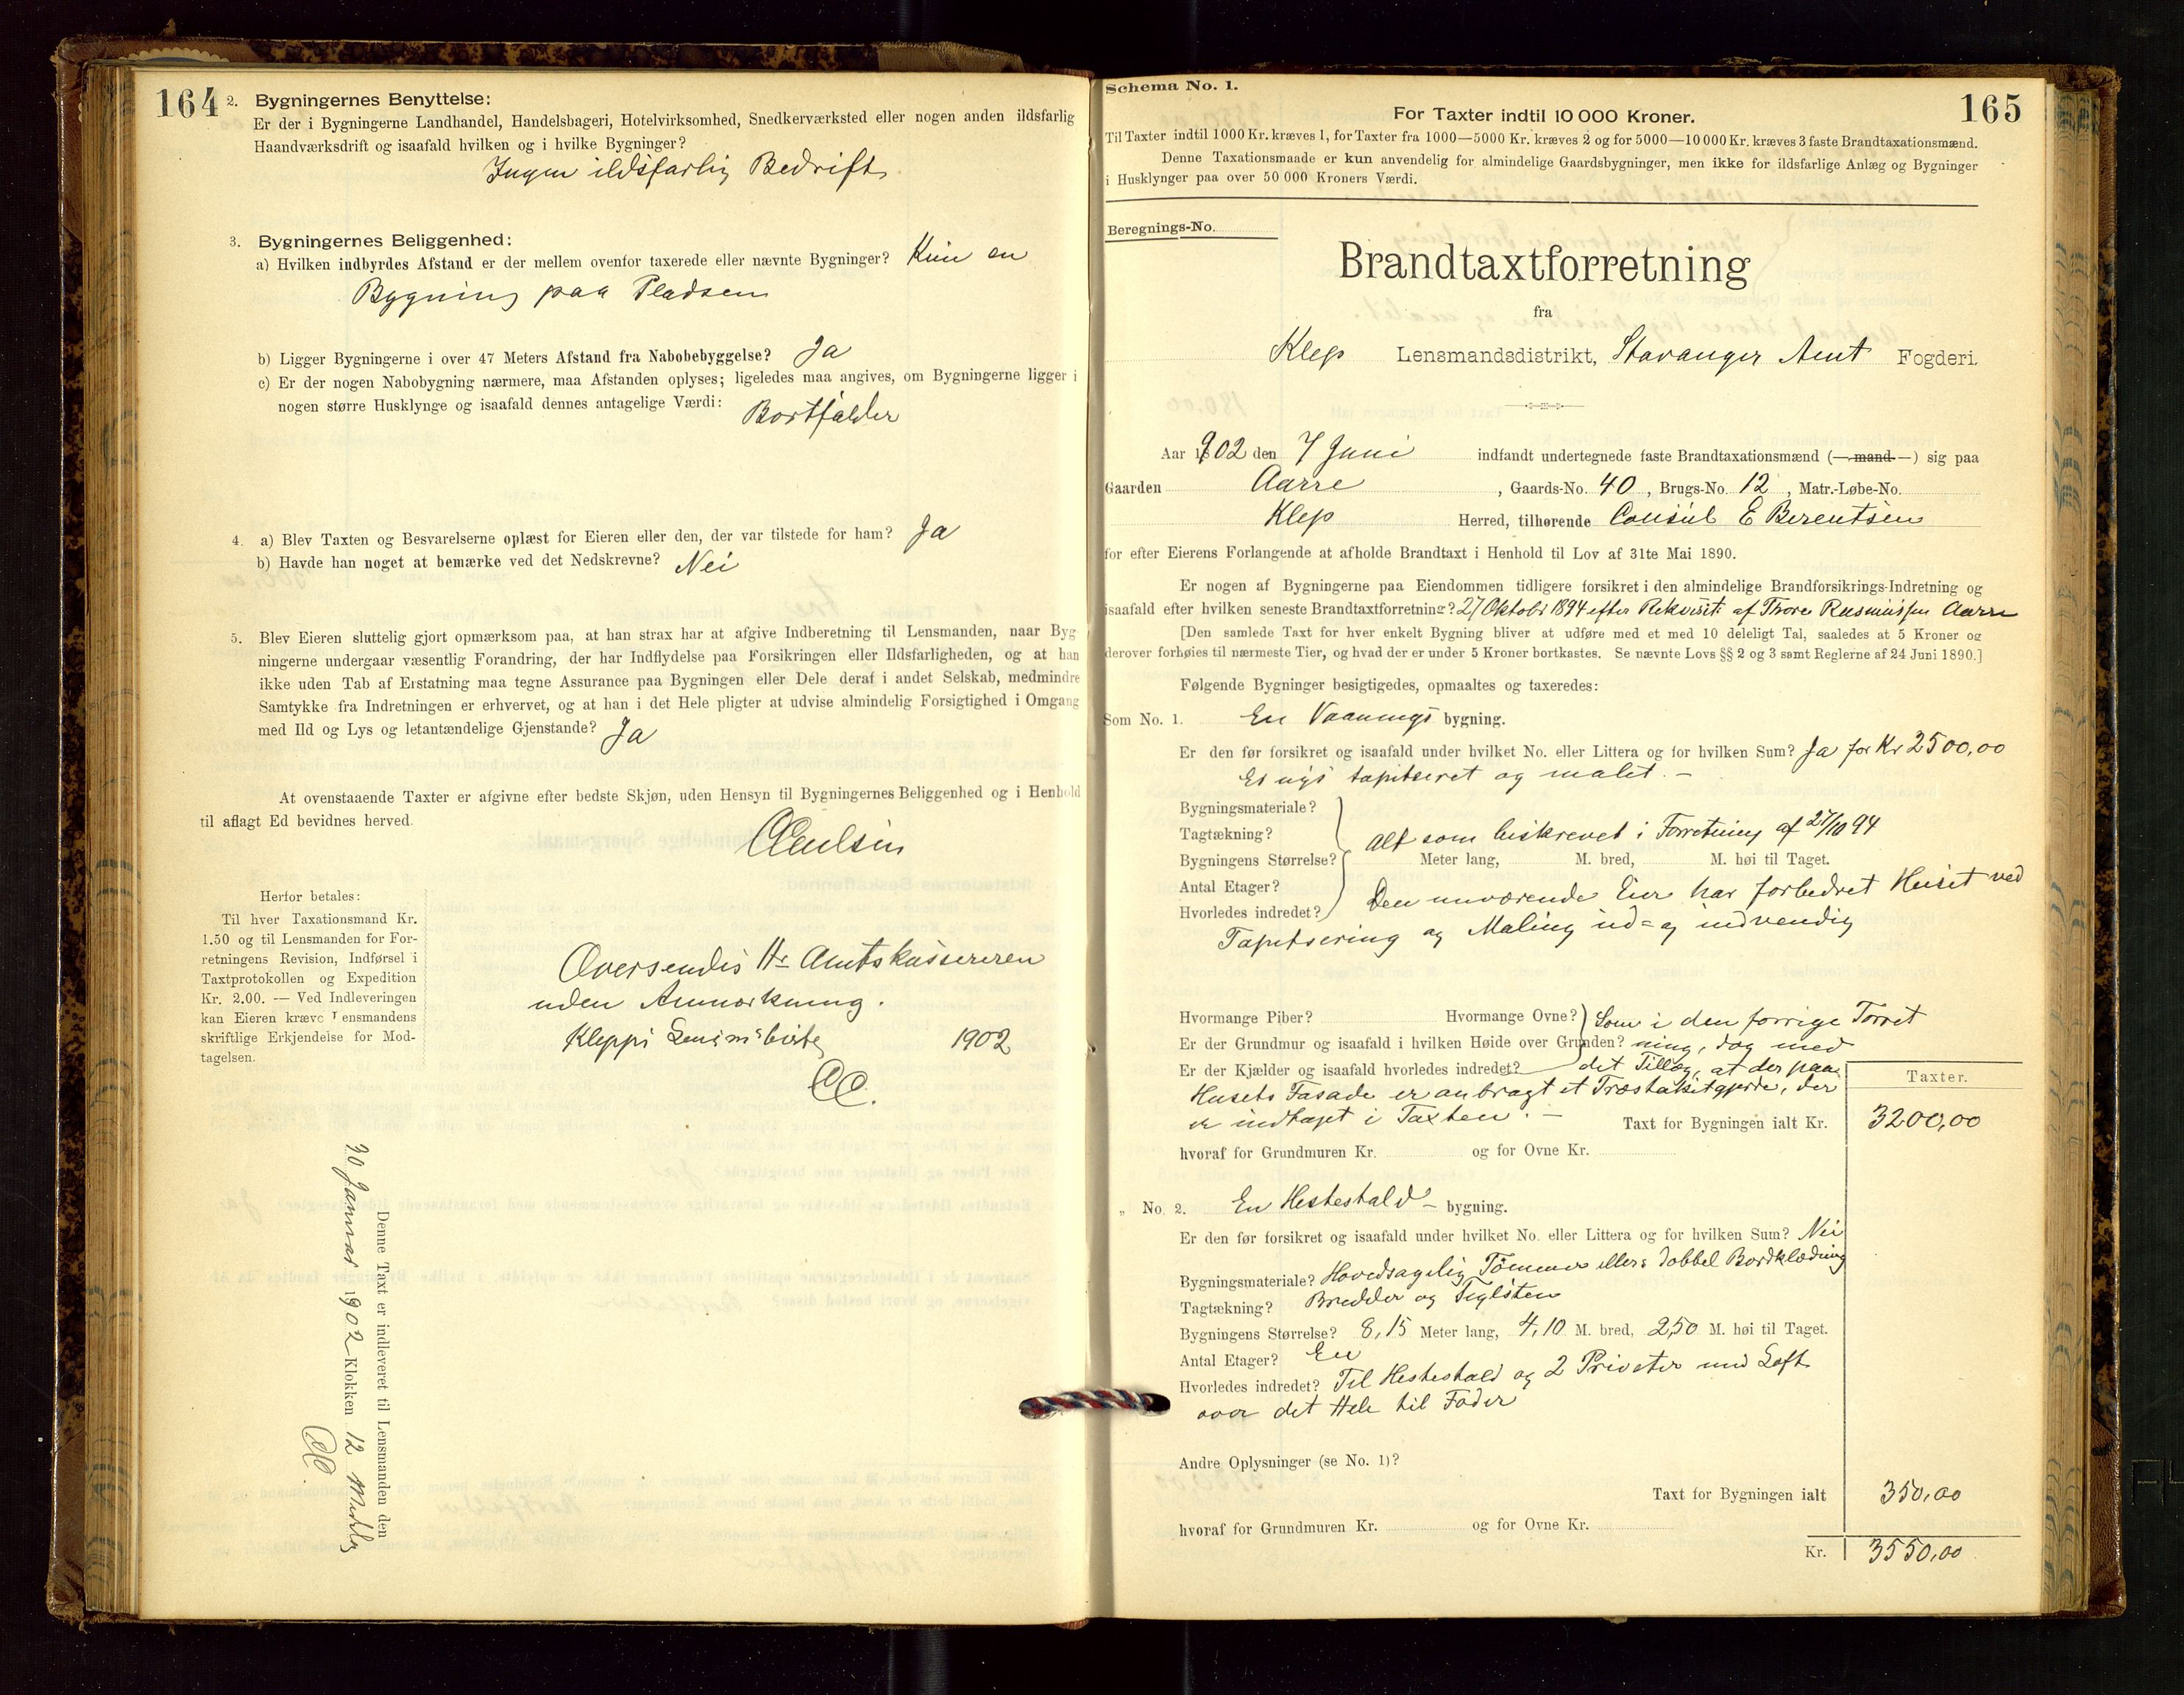 164
2. Bygningernes Benyttelse:
Er der i Bygningerne Landhandel, Handelsbageri, Hotelvirksomhed, Snedkerværksted eller nogen anden ildsfarlig
Haandværksdrift og isaafald hvilken og i hvilke Bygninger?
Ingen ildsfarlig Bedrift
3. Bygningernes Beliggenhed:
a) Hvilken indbyrdes Afstand er der mellem ovenfor taxerede eller nævnte Bygninger? Kun en
Bygning paa Pladsen
b) Ligger Bygningerne i over 47 Meters Afstand fra Nabobebyggelse? Ja
c) Er der nogen Nabobygning nærmere, maa Afstanden oplyses; ligeledes maa angives, om Bygningerne ligger i
nogen større Husklynge og isaafald dennes antagelige Værdi: Bortfalder
4. a) Blev Taxten og Besvarelserne oplæst for Eieren eller den, der var tilstede for ham? Ja
b) Havde han noget at bemærke ved det Nedskrevne? Nei
5. Blev Eieren sluttelig gjort opmærksom paa, at han strax har at afgive Indberetning til Lensmanden, naar Byg
ningerne undergaar væsentlig Forandring, der har Indflydelse paa Forsikringen eller Ildsfarligheden, og at han
ikke uden Tab af Erstatning maa tegne Assurance paa Bygningen eller Dele deraf i andet Selskab, medmindre
Samtykke fra Indretningen er erhvervet, og at han i det Hele pligter at udvise almindelig Forsigtighed i Omgang
med Ild og Lys og letantændelige Gjenstande? Ja
At ovenstaaende Taxter er afgivne efter bedste Skjøn, uden Hensyn til Bygningernes Beliggenhed og i Henhold
til aflagt Ed bevidnes herved.
Herfor betales:
Til hver Taxationsmand Kr.
1.50 og til Lensmanden for For-
retningens Revision, Indførsel i
Taxtprotokollen og Expedition
Kr. 2.00. — Ved Indleveringen
kan Eieren kræve Lensmandens
skriftlige Erkjendelse for Mod-
tagelsen.
Oversendes Hr Amtskassereren
uden Anmærkning.
1902
Denne Taxt er indleveret til Lensmanden den
Januar 1902 Klokken 12 Middag
Schema No. 1.
165
For Taxter indtil 10 000 Kroner.
Til Taxter indtil 1000 Kr. kræves 1, for Taxter fra 1000—5000 Kr. kræves 2 og for 5000—10 000 Kr. kræves 3 faste Brandtaxationsmænd.
Denne Taxationsmaade er kun anvendelig for almindelige Gaardsbygninger, men ikke for ildsfarlige Anlæg og Bygninger
i Husklynger paa over 50 000 Kroners Værdi.
Beregnings-No.
Brandtaxtforretning
fra
Klep Lensmandsdistrikt, Stavanger Amt Fogderi.
Aar 1902 den 7 Juni indfandt undertegnede faste Brandtaxationsmænd (—mand—) sig paa
Gaarden Aarre, Gaards-No. 40, Brugs-No. 12, Matr.-Løbe-No.
Klep Herred, tilhørende Consul E Berentsen
for efter Eierens Forlangende at afholde Brandtaxt i Henhold til Lov af 31te Mai 1890.
Er nogen af Bygningerne paa Eiendommen tidligere forsikret i den almindelige Brandforsikrings-Indretning og
isaafald efter hvilken seneste Brandtaxtforretning? 27 Oktobr 1894 efter Rekvisit. af Thore Rasmussen Aarre
[Den samlede Taxt for hver enkelt Bygning bliver at udføre med et med 10 deleligt Tal, saaledes at 5 Kroner og
derover forhøies til nærmeste Tier, og hvad der er under 5 Kroner bortkastes. Se nævnte Lovs §§ 2 og 3 samt Reglerne af 24 Juni 1890.]
Følgende Bygninger besigtigedes, opmaaltes og taxeredes:
Som No. 1. En Vaanings bygning.
Er den før forsikret og isaafald under hvilket No. eller Littera og for hvilken Sum? Ja for Kr 2500,00
Er nys tapitseret og malet. —
Bygningsmateriale?
Tagtækning?
Alt som beskrevet i Forretning af 27/10 94
Bygningens Størrelse? Meter lang, M. bred, M. høi til Taget.
Antal Etager?
Den nuværende Eier har forbedret Huset ved
Hvorledes indredet?
Tapitsering og Maling ud= og indvendig
Hvormange Piber? Hvormange Ovne? Som i den forrige Forret
Er der Grundmur og isaafald i hvilken Høide over Grunden? ning, dog med
Er der Kjælder og isaafald hvorledes indredet? det Tillæg, at der paa
Taxter.
Husets Fasade er anbragt et Træstakitgjerde, der
er indtaget i Taxten. — Taxt for Bygningen ialt Kr. 3200,00
hvoraf for Grundmuren Kr. og for Ovne Kr.
„ No. 2. En Hestestald - bygning.
Er den før forsikret og isaafald under hvilket No. eller Littera og for hvilken Sum? Nei
Bygningsmateriale? Hovedsagelig Tømmer ellers dobbel Bordklædning
Tagtækning? Bredder og Teglsten
Bygningens Størrelse? 8,15 Meter lang, 4,10 M. bred, 2,50 M. høi til Taget.
Antal Etager? En
Hvorledes indredet? Til Hestestald og 2 Priveter med Loft
over det Hele til Foder
Andre Oplysninger (se No. 1)?
Taxt for Bygningen ialt 350,00
hvoraf for Grundmuren Kr. og for Ovne Kr.
Kr. 3550,00